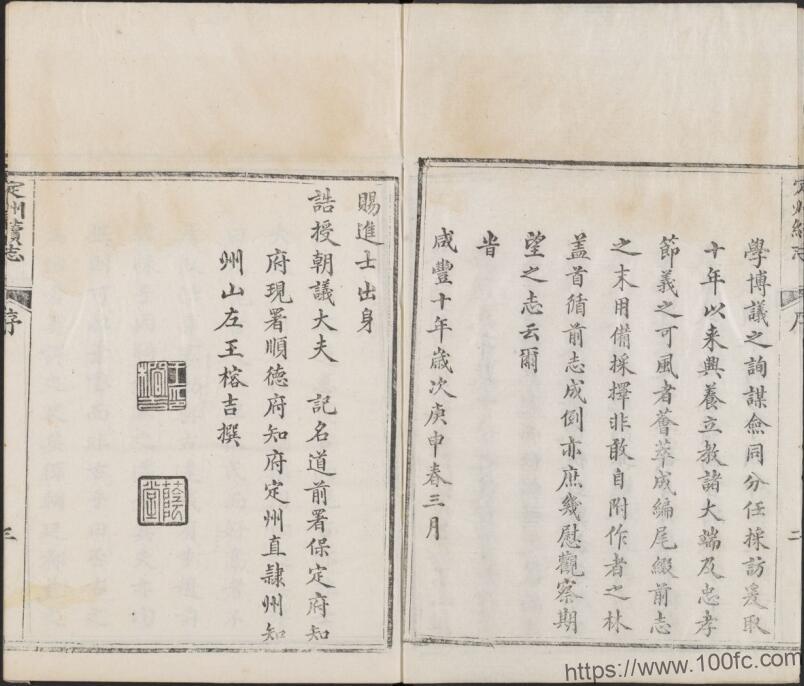 定州續志
序
二
學博議之詢謀僉同分任採訪爰取
十年以來興養立教諸大端及忠孝
節義之可風者薈萃成編尾綴前志
之末用備採擇非敢自附作者之林
蓋首循前志成例亦庶幾慰觀察期
望之志云爾
旹
咸豐十年歲次庚申春三月
賜進士出身
誥授朝議大夫 記名道前署保定府知
府現署順德府知府定州直隸州知
州山左王榕吉撰
蔭堂
定州續志
序
三
https://www.100fc.com